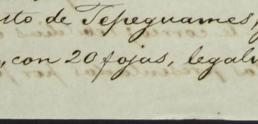 sto de Tepeguames,
, con 20 fojas, legalm